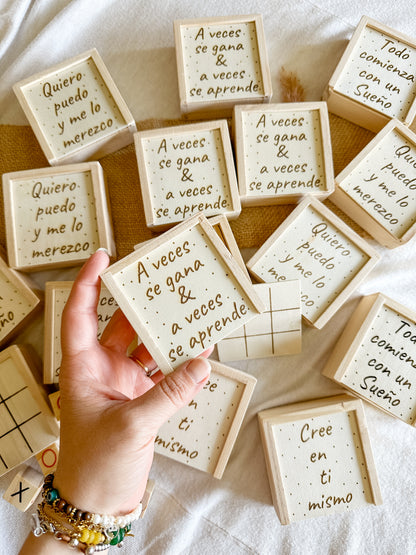 A veces
se gana
&
a veces
se aprende
Todo
comienza
con un
Sueño
Quiero
puedo
y me lo
merezco
A veces
se gana
&
a veces
se aprende
A veces
se gana
&
a veces
se aprende
Quiero
puedo
y me lo
merezco
Quiero
puedo
y me lo
merezco
Quiero
puedo
y me lo
merezco
A veces
se gana
&
a veces
se aprende
Todo
comienza
con un
Sueño
en ti
mismo
Creé
en ti
mismo
X
O